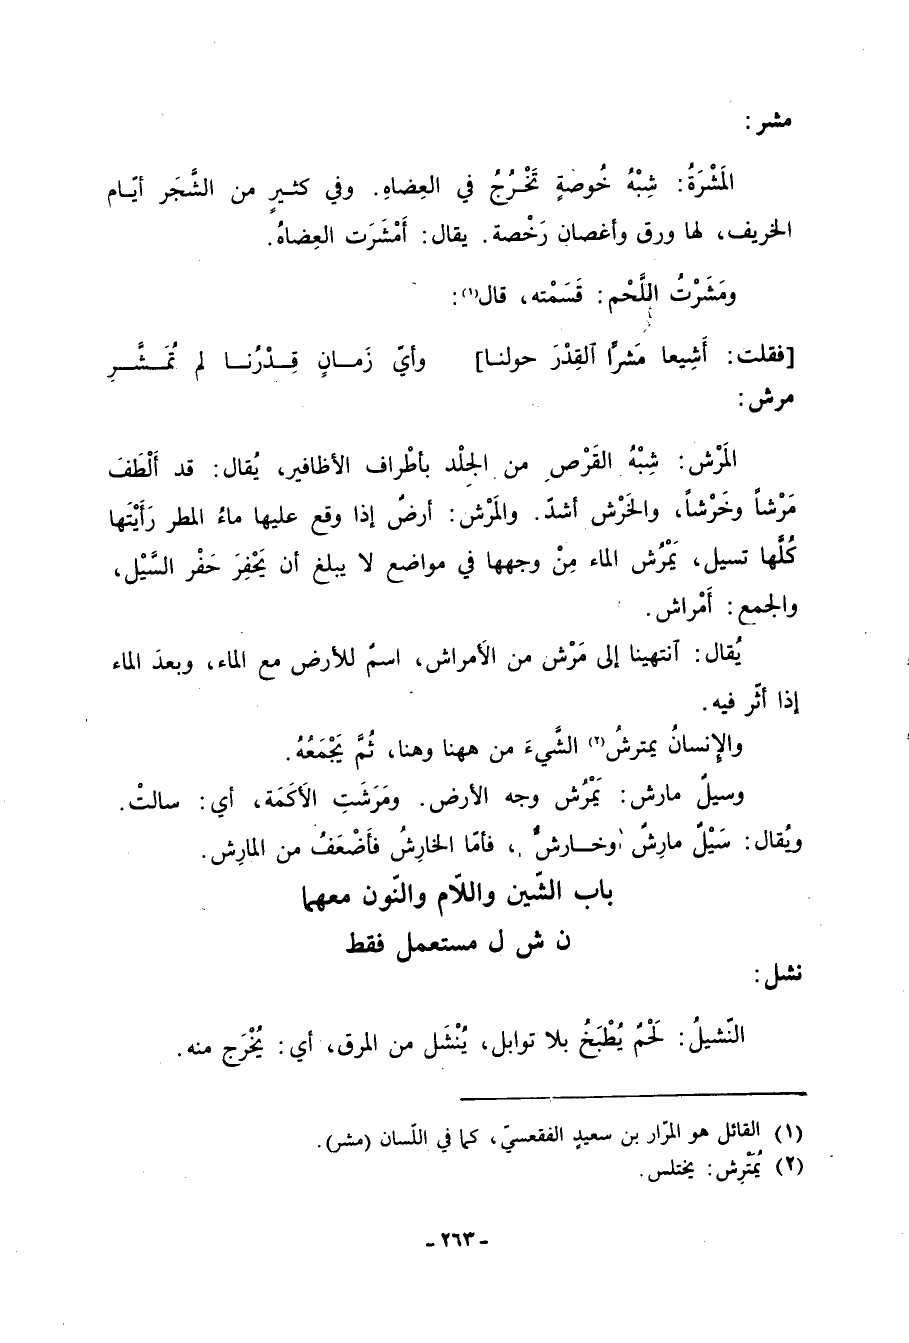 مشر :
المَشْرَةُ : شِبْهُ خُوصةٍ تَخْرُجُ في العِضاهِ. وفي كثيرٍ من الشَّجَر أيّام
الخريف، لها ورق وأغصان رَخْصة. يقال: أَمْشَرَت العِضاهُ.
ومَشَرْتُ اللَّحْم : قَسَمْته، قال(١):
[فقلت: أَشِيعا مَشرًا ٱلقِدْرَ حولنا] وأيّ زَمانٍ قِدْرُنا لم تُمَشَّرِ
مرش :
المَرْش : شِبْهُ القَرْصِ من الجِلْد بأطْراف الأظافير، يُقال: قد أَلْطَفَ
مَرْشاً وخَرْشاً، والخَرْش أشدّ. والمَرْش: أرضٌ إذا وقع عليها ماءُ المطر رَأَيْتَها
كُلَّها تسيل، يَمْرُش الماء مِنْ وجهها في مواضع لا يبلغ أن يَحْفِرَ حَفْر السَّيْل،
والجمع : أَمْراش.
يُقال : ٱنتهينا إلى مَرْش من الأَمراش، اسمٌ للأرض مع الماء، وبعدَ الماء
إذا أثّر فيه.
والإنسانُ يمترشُ(٢) الشَّيءَ من ههنا وهنا، ثُمَّ يَجْمَعُهُ.
وسيلٌ مارش : يَمْرُش وجه الأرض. ومَرَشَتِ الأَكَمَة، أي: سالتْ.
ويُقال: سَيْلٌ مارِشٌ وخارشٌ، فأمّا الخارِشُ فأَضْعَفُ من المارِش.
باب الشّين واللّام والنّون معهما
ن ش ل مستعمل فقط
نشل :
النّشيلُ : لَحْمٌ يُطْبَخُ بلا توابل، يُنْشَل من المرق، أي : يُخْرَج منه.
(١) القائل هو المرّار بن سعيدٍ الفقعسيّ، كما في اللّسان (مشر).
(٢) يُمْتَرِش : يختلس.
- ٢٦٣ -